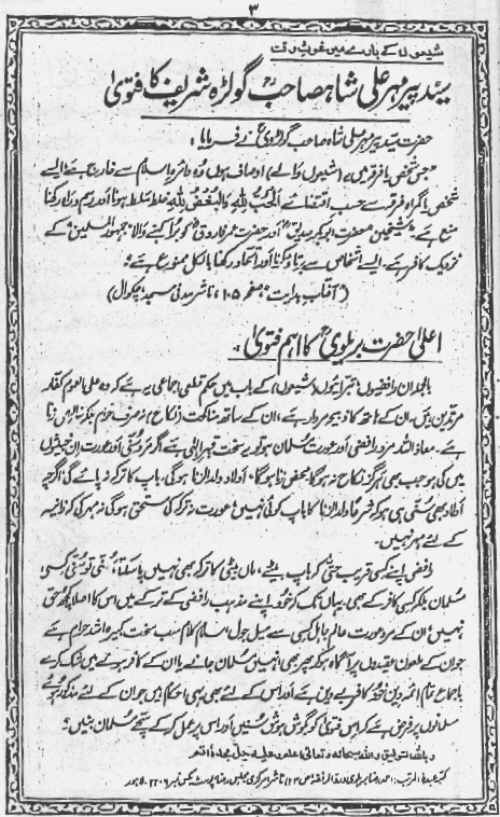 ۳
شیعوں کے بارے میں غوث وقت
سید پیر مہر علی شاہ صاحبؒ گولڑہ شریف کا فتویٰ
حضرت سید پیر مہر علی شاہ صاحب گولڑویؒ نے فرمایا:
"جس شخص یا فرقہ میں یہ (شیعوں والے) اوصاف ہوں وہ دائرہ اسلام سے خارج ہے ایسے
شخص یا گمراہ فرقہ سے حسب اقتضائے اَلْحُبُّ لِلّٰہِ وَالْبُغْضُ لِلّٰہِ خلط ملط ہونا اور رسم و راہ رکھنا
منع ہے۔ شیخین حضرت ابوبکر صدیقؓ اور حضرت عمر فاروقؓ کو برا کہنے والا "جمہور المسلمین" کے
نزدیک کافر ہے۔ ایسے اشخاص سے برتاؤ کرنا اور اتحاد رکھنا بالکل ممنوع ہے"
(آفتاب ہدایت، صفحہ ۱۰۵، ناشر مدنی مسجد، چکوال)
اعلیٰ حضرت بریلویؒ کا اہم فتویٰ
بالجملہ ان رافضیوں (تبرائیوں) (شیعوں) کے باب میں حکم قطعی اجماعی یہ ہے کہ وہ علی العموم کفار
مرتدین ہیں، ان کے ہاتھ کا ذبیحہ مردار ہے، ان کے ساتھ مناکحت (نکاح) نہ صرف حرام بلکہ خالص زنا
ہے۔ معاذ اللہ مرد رافضی اور عورت مسلمان ہو تو یہ سخت قہر الٰہی ہے اگر مرد سنی اور عورت ان خبیثوں
میں کی ہو جب بھی ہرگز نکاح نہ ہوگا محض زنا ہوگا، اولاد ولد الزنا ہوگی، باپ کا ترکہ نہ پائے گی، اگرچہ
اولاد بھی سنی ہی ہو کہ شرعاً ولد الزنا کا باپ کوئی نہیں، عورت نہ ترکہ کی مستحق ہوگی نہ مہر کی کہ زانیہ
کے لئے مہر نہیں۔
رافضی اپنے کسی قریب حتیٰ کہ باپ بیٹے، ماں بیٹی کا ترکہ بھی نہیں پا سکتا، سنی تو سنی کسی
مسلمان بلکہ کسی کافر کے بھی، یہاں تک کہ خود اپنے ہم مذہب رافضی کے ترکے میں اس کا اصلاً کچھ حق
نہیں، ان کے مرد عورت عالم جاہل کسی سے میل جول، سلام کلام سب سخت کبیرہ اشد حرام ہے
جو ان کے ملعون عقیدوں پر آگاہ ہو کر پھر بھی انہیں مسلمان جانے یا ان کے کافر ہونے میں شک کرے
باجماع تمام ائمہ دین خود کافر بے دین ہے اور اس کے لئے بھی یہی احکام ہیں جو ان کے لئے مذکور ہوئے
مسلمانوں پر فرض ہے کہ اس فتویٰ کو بگوش ہوش سنیں اور اس پر عمل کر کے سچے مسلمان بنیں۔
وباللہ التوفیق واللہ سبحانہ وتعالیٰ اعلم
ناشر مرکزی مجلس رضا پوسٹ بکس نمبر ۲۲۰۶ لاہور